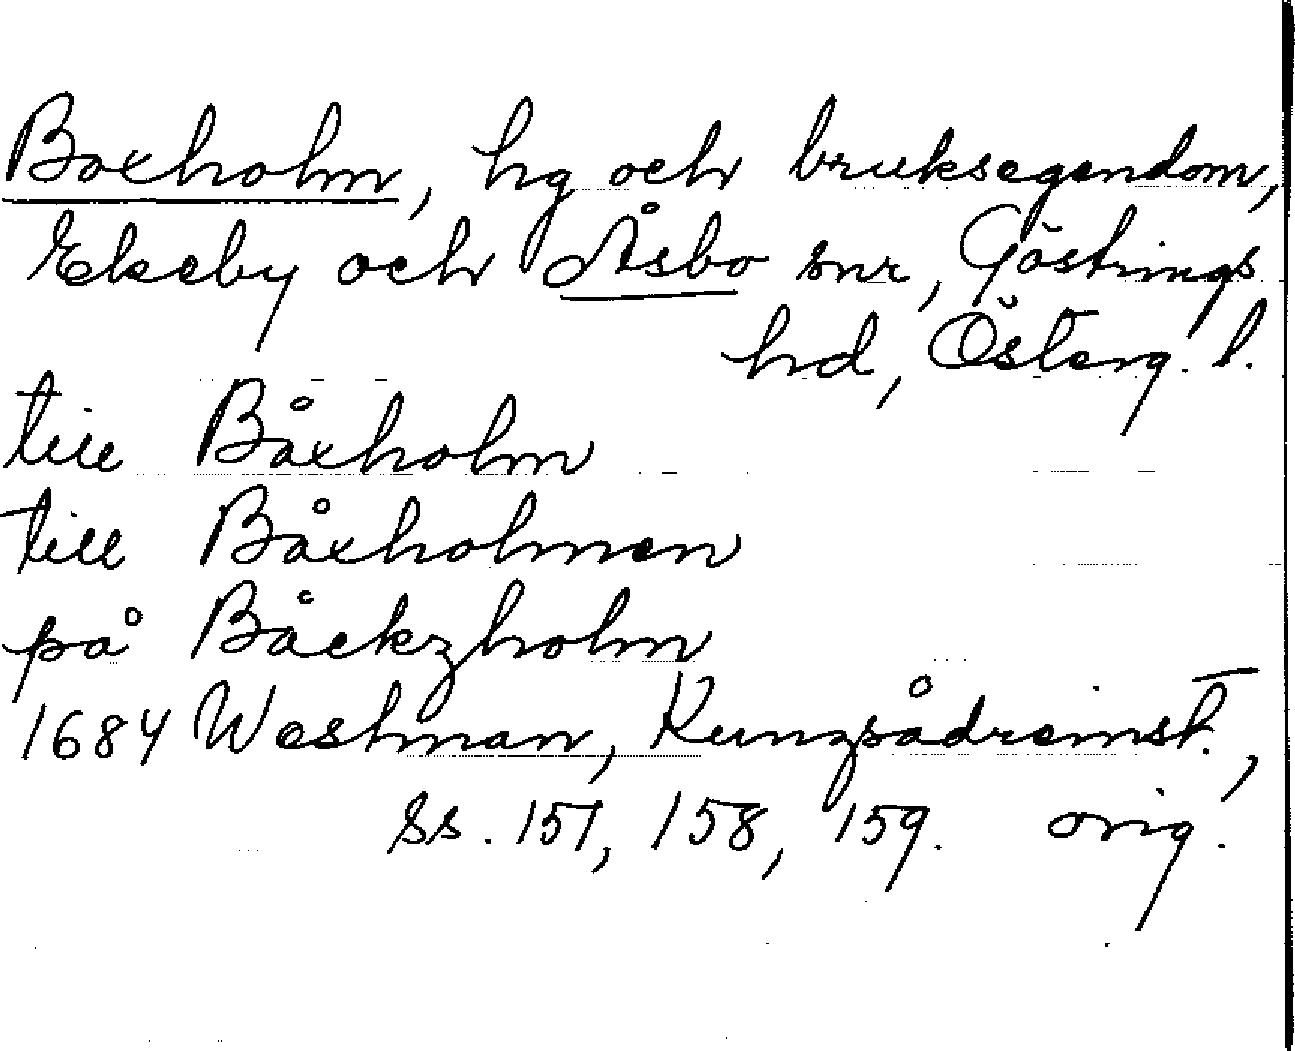 Boxholm, hg och bruksegendom,
Ekeby och Åsbo snr, Göstrings
hd, Österg. l.
till Båxholm
till Båxholmen
på Båckzholm
1684 Westman, Kunzsådreinst.,
ss. 157, 158, 159. orig.